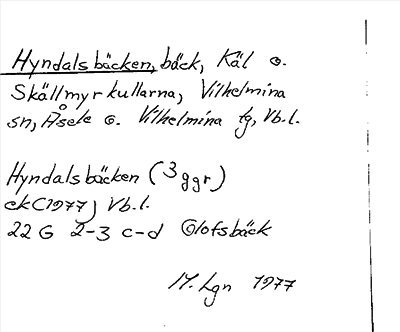 Hyndalsbäcken, bäck, Käl o.
Skällmyrkullarna, Vilhelmina
sn, Åsele o. Vilhelmina tg, Vb.l.
Hyndalsbäcken (3 ggr)
ek(1977) Vb.l.
22 G 2-3 c-d Olofsbäck
M. Lgn 1977